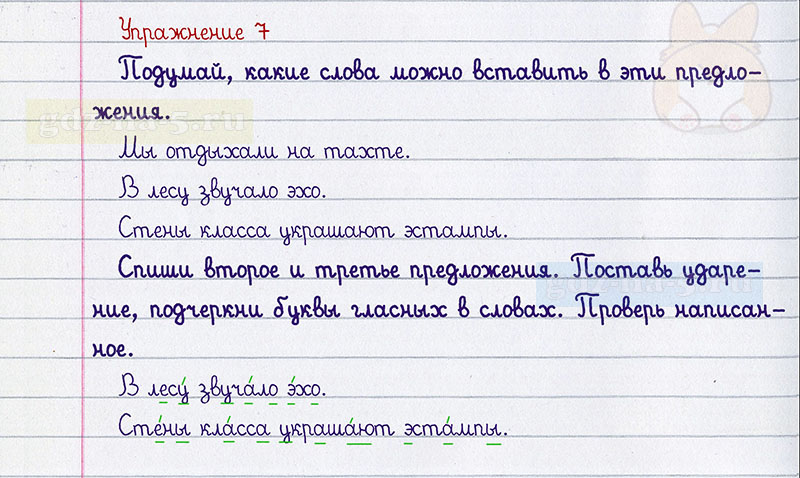 Упражнение 7
Подумай, какие слова можно вставить в эти предло-
жения.
gdzna-5.ru
Мы отдыхали на тахте.
В лесу звучало эхо.
Стены класса украшают эстампы.
Спиши второе и третье предложения. Поставь ударе-
ние, подчеркни буквы гласных в словах. Проверь написан-
ное.
В лесу́ звуча́ло э́хо.
Сте́ны кла́сса украша́ют эста́мпы.